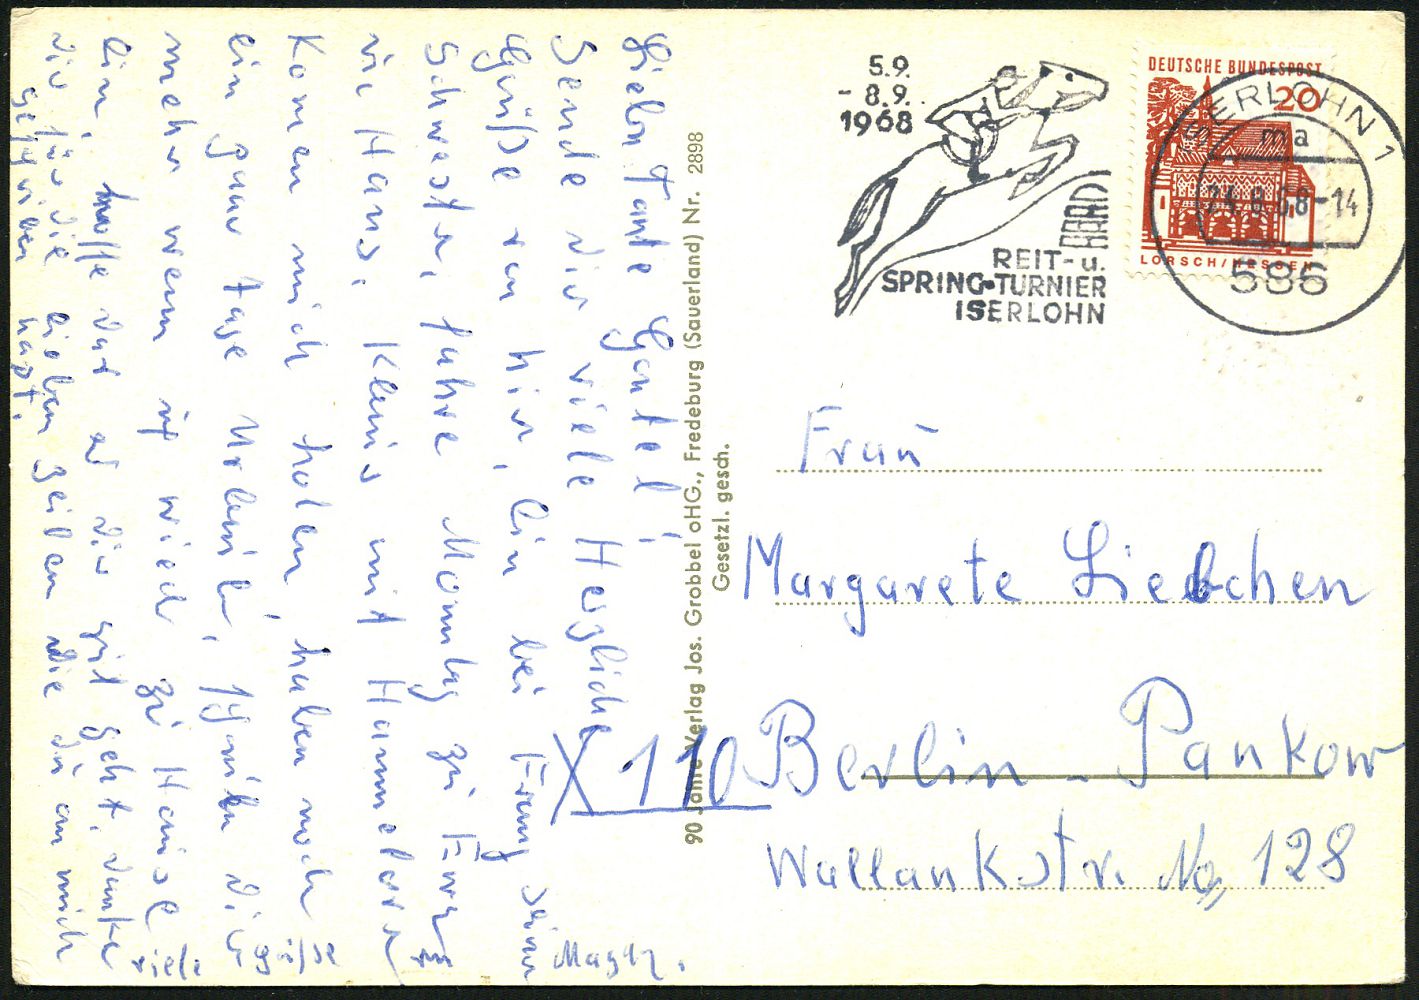 5.9.
- 8.9.
1968
REIT- u.
SPRING-TURNIER
ISERLOHN
DEUTSCHE BUNDESPOST
20
LORSCH/HESSEN
ISERLOHN 1
ma
24.8.68-14
586
Frau
Margarete Liebchen
X 110 Berlin - Pankow
Wallankstr. No 128
90 Jahre Verlag Jos. Grobbel oHG., Fredeburg (Sauerland) Nr. 2898
Gesetzl. gesch.
Liebn Tante
Sende dir viele Herzliche
Grüße von hir, bin bei Franz seiner
Schwester, fahre Montag zu
Hans, Klaus mit Hannelore
Komen mich holen, haben noch
ein paar tage Urlaub,
mehr wenn ich wied zu Hause
bin, hoffe das es dir gut geht, danke
dir für die lieben Zeilen die du an mich
geschrieben hast.
viele grüße